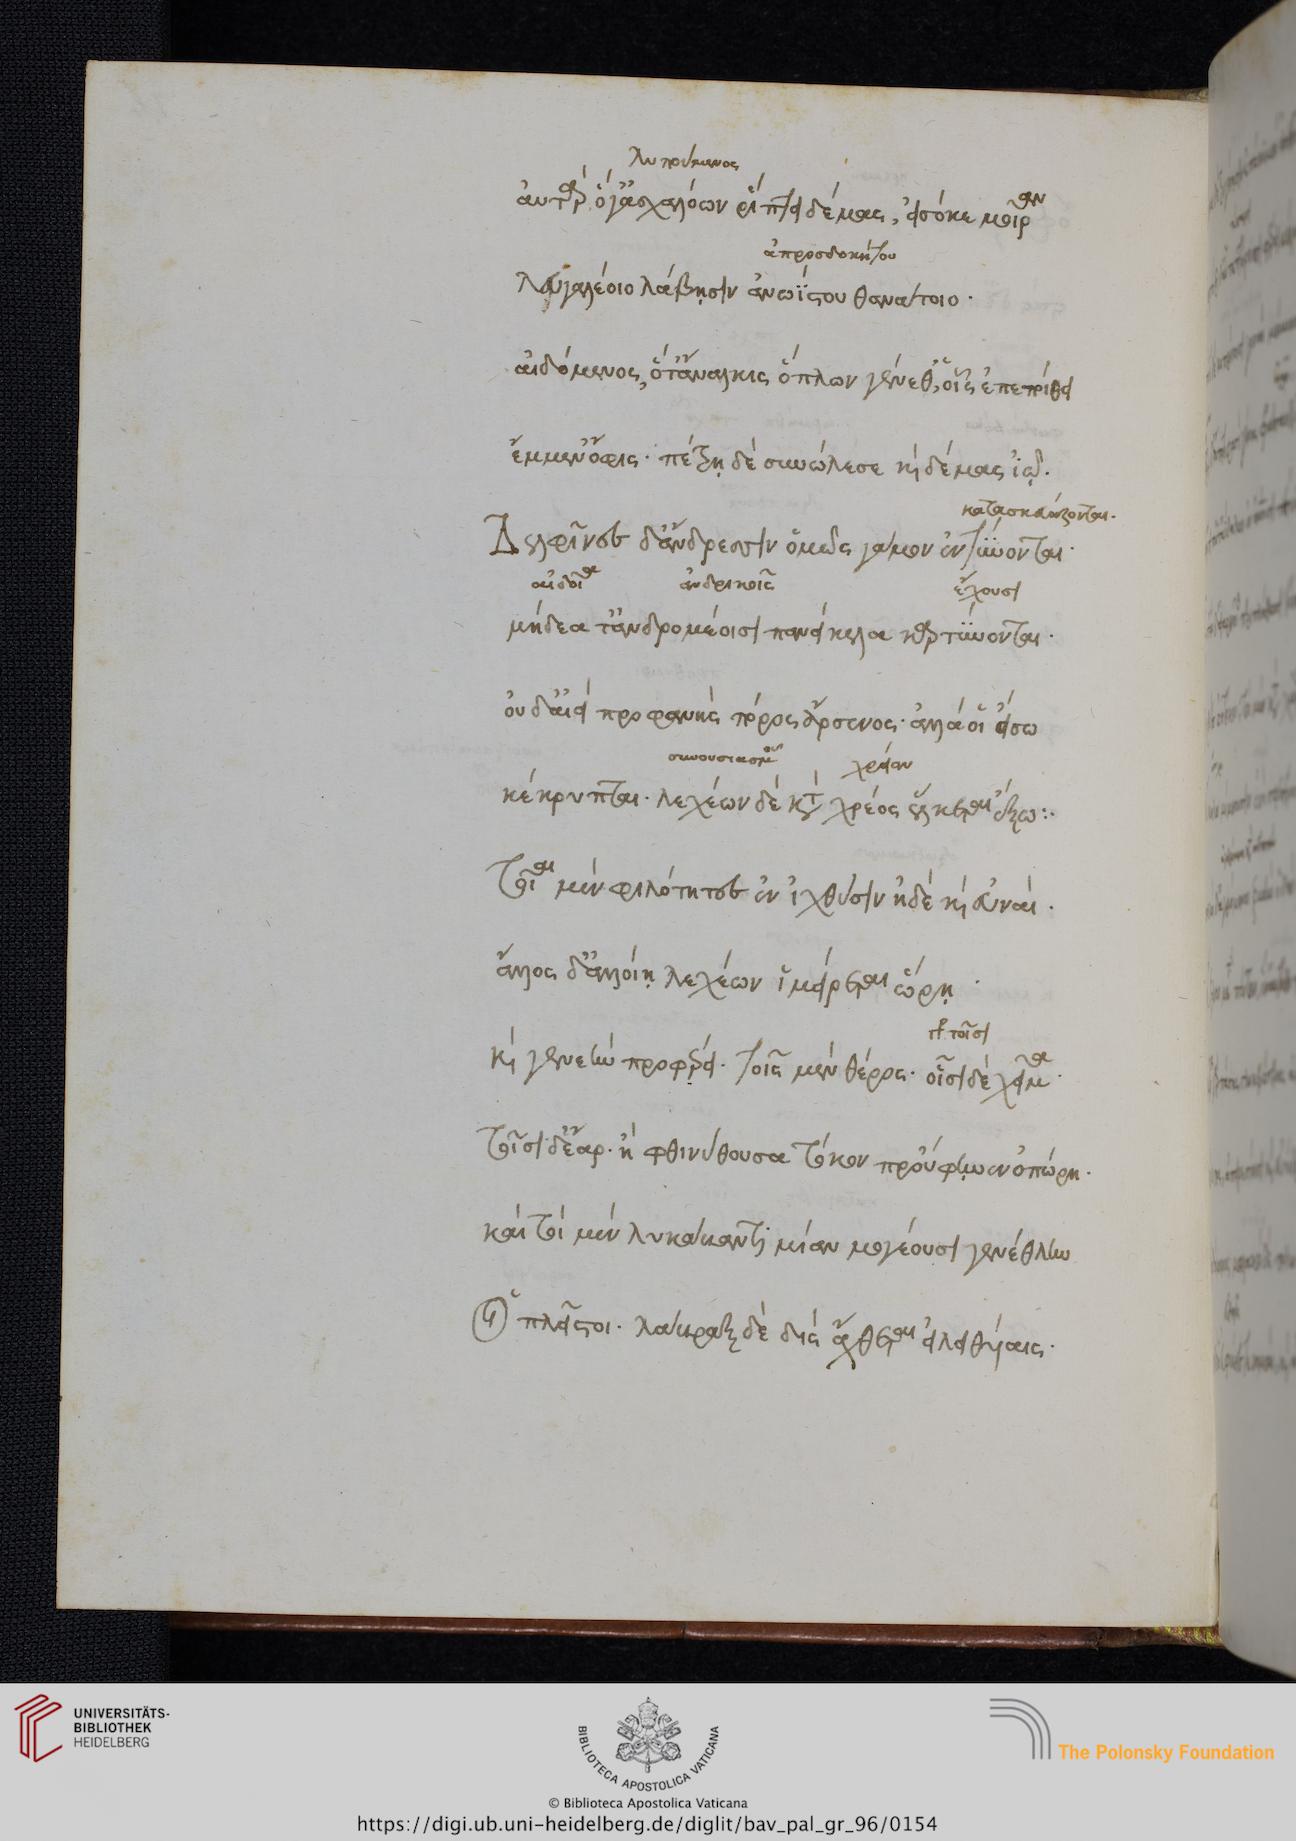 λυπούμενος
αὐτὰρ ὅγ' ἀσχαλόων ῥίπτει δέμας, εἰσόκε μοῖραν
ἀπροσδοκήτου
λευγαλέοιο λάβῃσιν ἀνωΐστου θανάτοιο·
αἰδόμενος, ὅτ' ἄναλκις ὅπλων γένεθ', οἷς ἐπεποίθει
ἔμμεν' ὄφις· πέτρῃ δὲ συνώλεσε καὶ δέμας ἰῷ.
κατασκευάζονται.
Δελφῖνες δ' ἄνδρεσσιν ὁμῶς γάμον ἐντύνονται·
αἰδοῖα ἀνδρικοῖς ἔχουσι
μήδεα τ' ἀνδρομέοισι πανείκελα καρτύνονται·
οὐδ' αἰεὶ προφανὴς πόρος ἄρσενος· ἀλλά οἱ εἴσω
συνουσιασμῶν χρείαν
κέκρυπται· λεχέων δὲ κατὰ χρέος ἕλκεται ἔξω:·
Τοῖαι μὲν φιλότητες ἐν ἰχθύσιν ἠδὲ καὶ εὐναί·
ἄλλος δ' ἀλλοίῃ λεχέων ἱμείρεται ὥρῃ·
τοῖσι
καὶ γενεὴν προφέρει· τοῖς μὲν θέρος· οἷσι δὲ χεῖμα·
τοῖσι δ' ἔαρ· ἢ φθινύθουσα τόκον προὔφηνεν ὀπώρη·
καὶ τοὶ μὲν λυκάβαντι μίαν μογέουσι γενέθλην
οἱ πλεῖστοι· λάβραξ δὲ δὶς ἄχθεται εἰλειθυίαις·
UNIVERSITÄTS-
BIBLIOTHEK
HEIDELBERG
BIBLIOTECA APOSTOLICA VATICANA
The Polonsky Foundation
© Biblioteca Apostolica Vaticana
https://digi.ub.uni-heidelberg.de/diglit/bav_pal_gr_96/0154